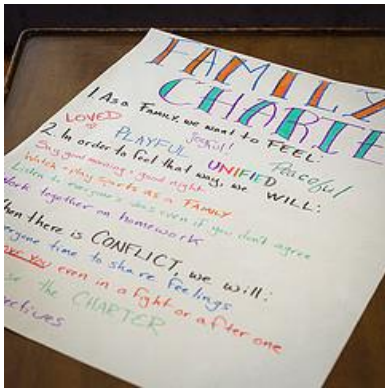 FAMILY
CHARTE
1. As a Family, we want to FEEL:
LOVED Joyful!
PLAYFUL UNIFIED Peaceful
2. In order to feel that way, we WILL:
Say good morning + good night
Watch + play sports as a FAMILY
Listen to everyone's ideas even if you don't agree
Work together on homework
hen there is CONFLICT, we will:
eryone time to share feelings
you even in a fight or after one
the CHARTER
ectives